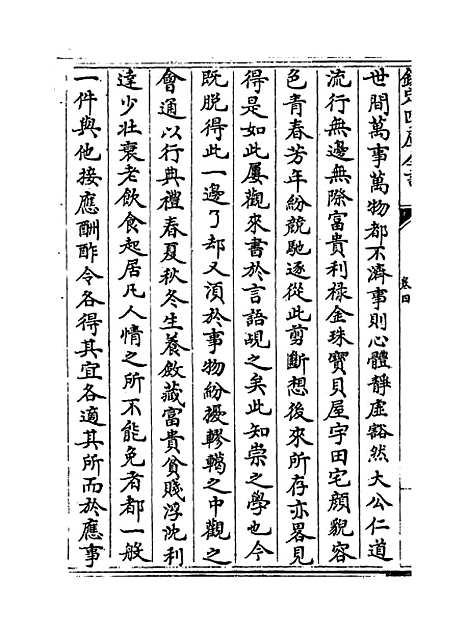 欽定四庫全書
卷四
世間萬事萬物都不濟事則心體靜虛豁然大公仁道
流行無邊無際富貴利祿金珠寶貝屋宇田宅顔貌容
色青春芳年紛競馳逐從此剪斷想後來所存亦畧見
得是如此屢觀來書於言語現之矣此知崇之學也今
既脱得此一邊了却又湏於事物紛擾轇轕之中觀之
會通以行典禮春夏秋冬生養斂藏富貴貧賤浮沈利
達少壯衰老飲食起居凡人情之所不能免者都一般
一件與他接應酬酢令各得其宜各適其所而於應事